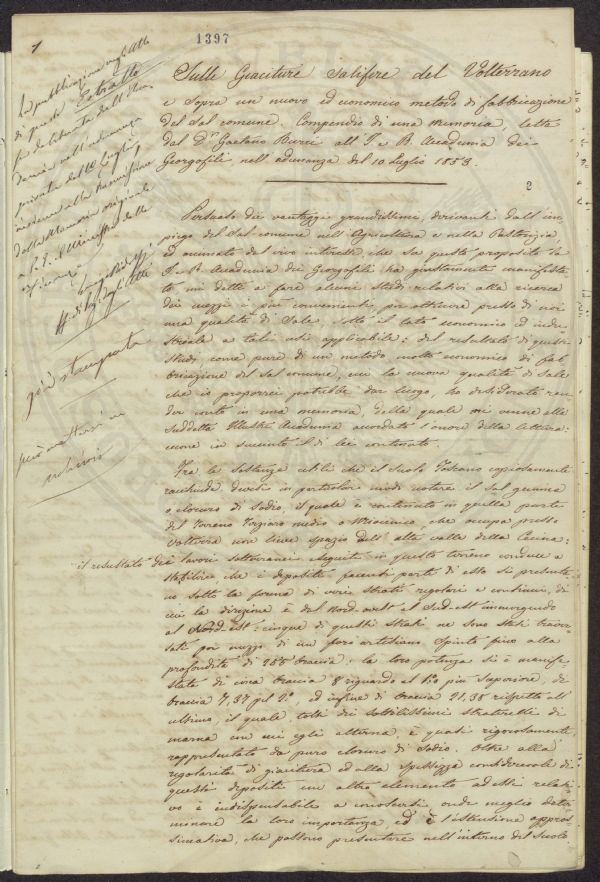 1
1397
In pubblicazione negli Atti
di questo Estratto
fu deliberata dall'
nell'adunanza
privata del
alla
della Memoria originale
a
già stampata
però
Sulle Giaciture Salifere del Volterrano
e sopra un nuovo ed economico metodo di fabbricazione
del sal comune. Compendio di una Memoria letta
dal Dr. Gaetano all'I. e R. Accademia dei
Georgofili, nell'adunanza del 10 Luglio 1853.
2
Persuaso dei vantaggi grandissimi, derivanti dall'im
piego del sal comune nell'Agricoltura e nella Pastorizia,
ed animato dal vivo interesse, che su questo proposito la
I. e R. Accademia dei Georgofili ha giustamente manifesta
to mi detti a fare alcuni studi relativi alla ricerca
dei mezzi i più convenienti, per ottenere presso di noi
una qualità di Sale sotto il lato economico ed indu
striale a tali usi applicabile: del resultato di questi
studi come pure di un metodo molto economico di fab
bricazione del sal comune, cui la nuova qualità di Sale
che io proporrei potrebbe dar luogo, ho desiderato ren
der conto in una memoria, della quale mi venne alla
suddetta Illustre Accademia accordato l'onore della lettura:
eccone in succinto il di lei contenuto.
Tra le sostanze utili che il suolo Toscano copiosamente
racchiude devesi in particolar modo notare il sal gemma
o cloruro di Sodio, il quale è contenuto in quella parte
del terreno Terziario medio o Miocenico, che occupa presso
Volterra non lieve spazio dell'alta valle della Cecina:
il resultato dei lavori sotterranei eseguiti in questo terreno conduce a
stabilire, che i depositi facenti parte di esso si presenta
no sotto la forma di varii strati regolari e continui, di
cui la direzione è dal Nord-west al Sud-est immergendo
al Nord-est: cinque di questi strati ne sono stati traver
sati per mezzo di un foro artesiano spinto fino alla
profondità di 255 braccia: la loro potenza si è manife
stata di circa braccia 8 riguardo al 1º. più superiore, di
braccia 7,37 pel 2º., ed infine di braccia 21,35 rispetto all'
ultimo, il quale tolti dei sottilissimi straterelli di
marna con cui egli alterna, è quasi rigorosamente
rappresentato da puro cloruro di Sodio. Oltre alla
regolarità di giacitura ed alla spessezza considerevole di
questi depositi un altro elemento ad essi relati
vo è indispensabile a conoscersi, onde meglio deter
minare la loro importanza, ed è l'estensione appros
simativa, che possono presentare nell'interno del suolo